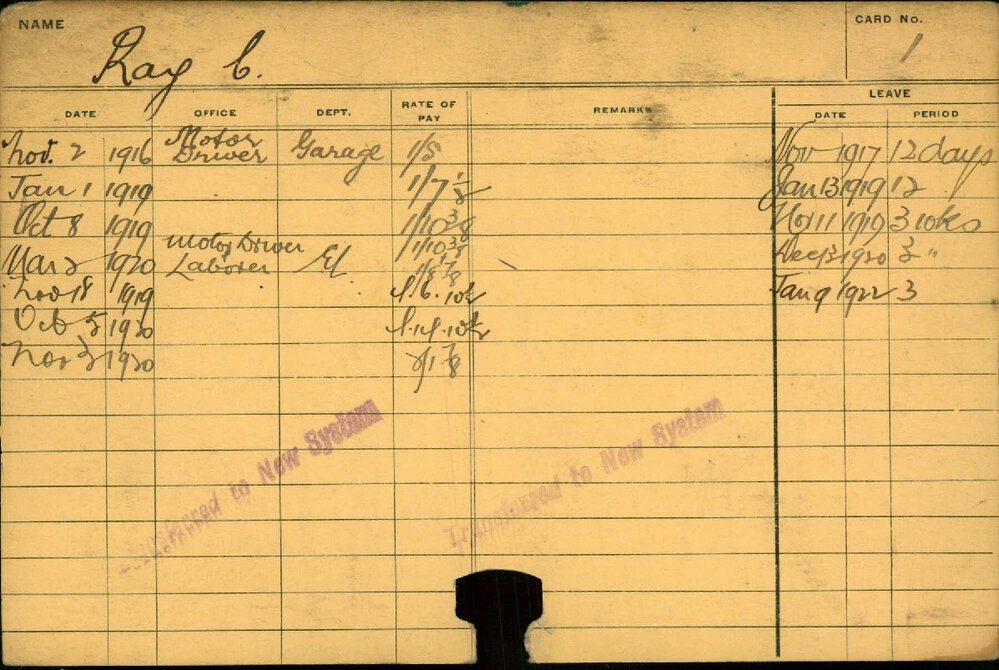 NAME
Ray C.
CARD No.
1
DATE OFFICE DEPT. RATE OF PAY REMARKS LEAVE DATE PERIOD
Nov. 2 1916 Motor Driver Garage 1/5 Nov 1917 12 days
Jan 1 1919 1/7 1/2 Jan 13 1919 12
Oct 8 1919 1/10 3/8 Nov 11 1919 3 wks
Mar 2 1920 Motor Driver Laborer El 1/10 3/8 1/8 7/8 Dec 13 1920 3 "
Nov 18 1919 10 1/2 Jan 9 1922 3
Oct 5 1920 10 1/2
Nov 3 1920 2/1 7/8
Transferred to New System
Transferred to New System